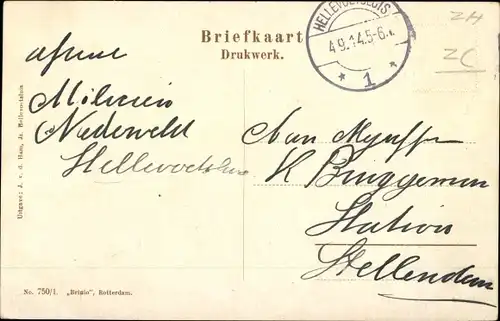 Briefkaart
Drukwerk.
HELLEVOETSLUIS
4 9.14.5-6
* 1 *
ZH
ZC
afzene
Milicien
Nederveld
Hellevoetsluis
Aan Mejuffr
K Bruggeman
Station
Stellendam
Uitgave: J. v. d. Ham, Jz. Hellevoetsluis
No. 750/1. „Brinio", Rotterdam.